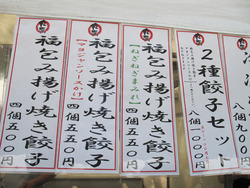 八個九
2種餃子セット
八個一
福包み揚げ焼き餃子
【ねぎねぎまみれ】
四個五五〇円
福包み揚げ焼き餃子
【マヨシャンソースかけ】
四個五五〇円
福包み揚げ焼き餃子
四個五〇〇円